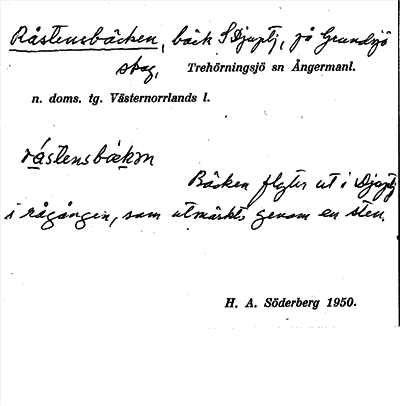 Råstensbäcken, bäck S Djuptj, på Grundsjö
skog, Trehörningsjö sn Ångermanl.
n. doms. tg. Västernorrlands l.
råstensbäkən
Bäcken flyter ut i Djuptj
i rågången, som utmärkts genom en sten.
H. A. Söderberg 1950.